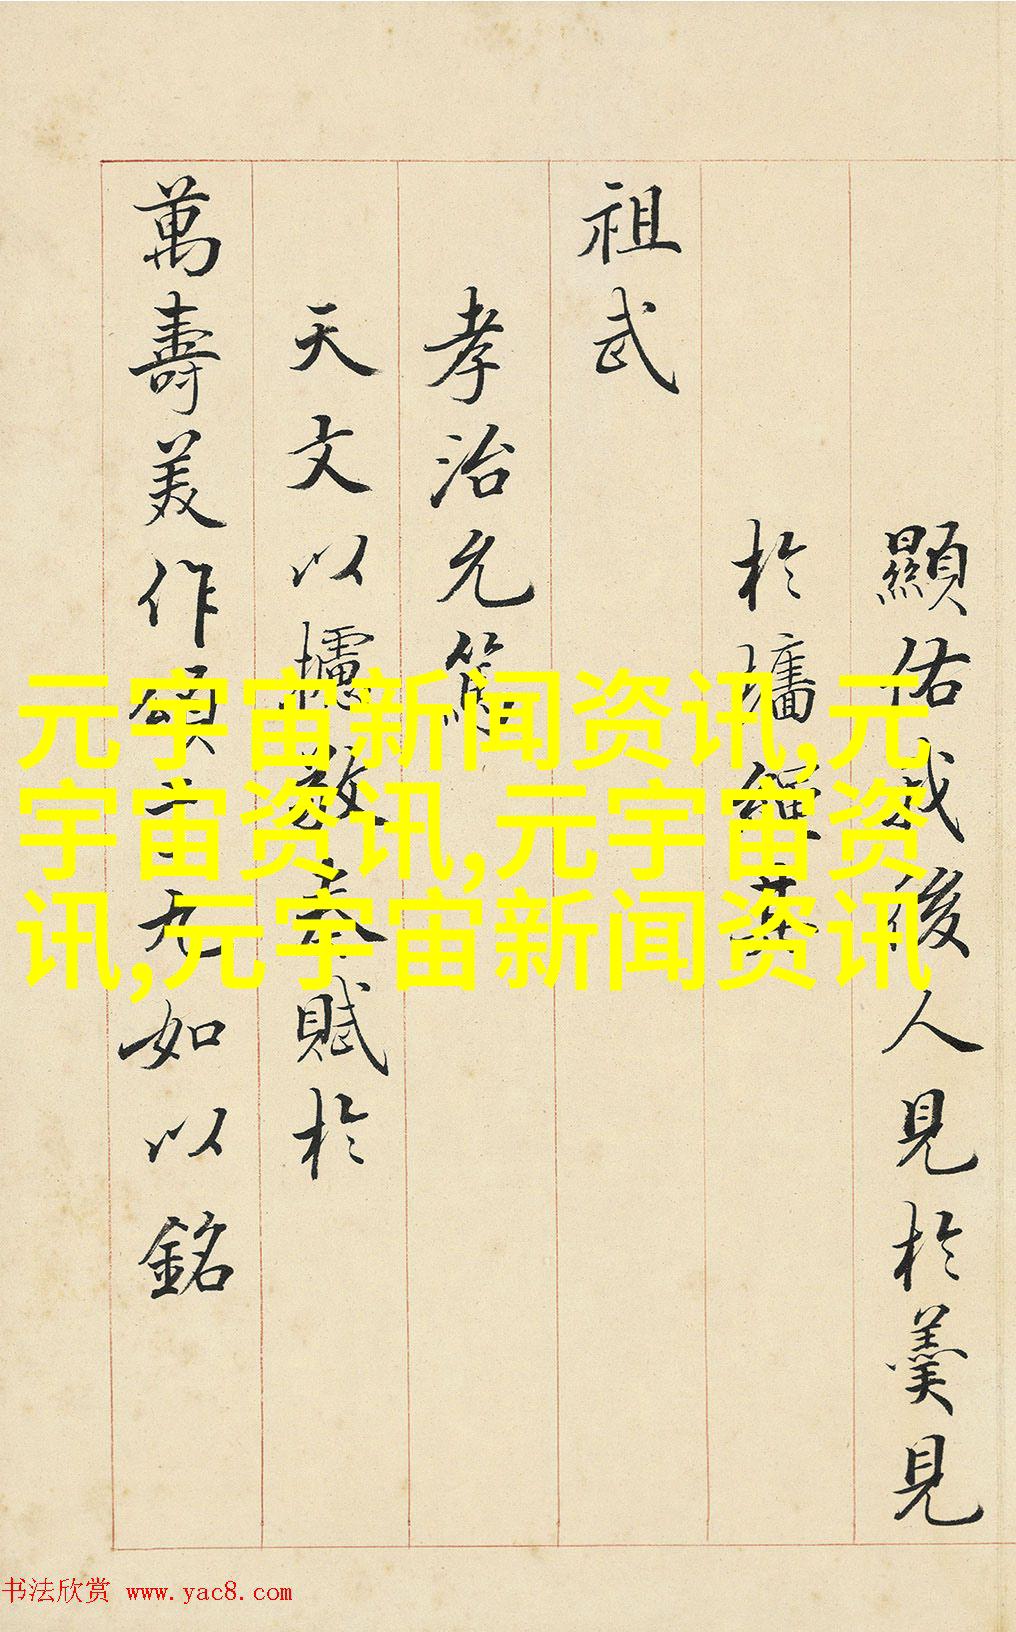 顯佑我後人見於羹見
於墻繩其
祖武
孝治允篤
天文以攄敬奉賦於
萬壽美作頌無如以銘
元宇宙新闻资讯,元
宇宙资讯,元宇宙资
讯,元宇宙新闻资讯
书法欣赏 www.yac8.com